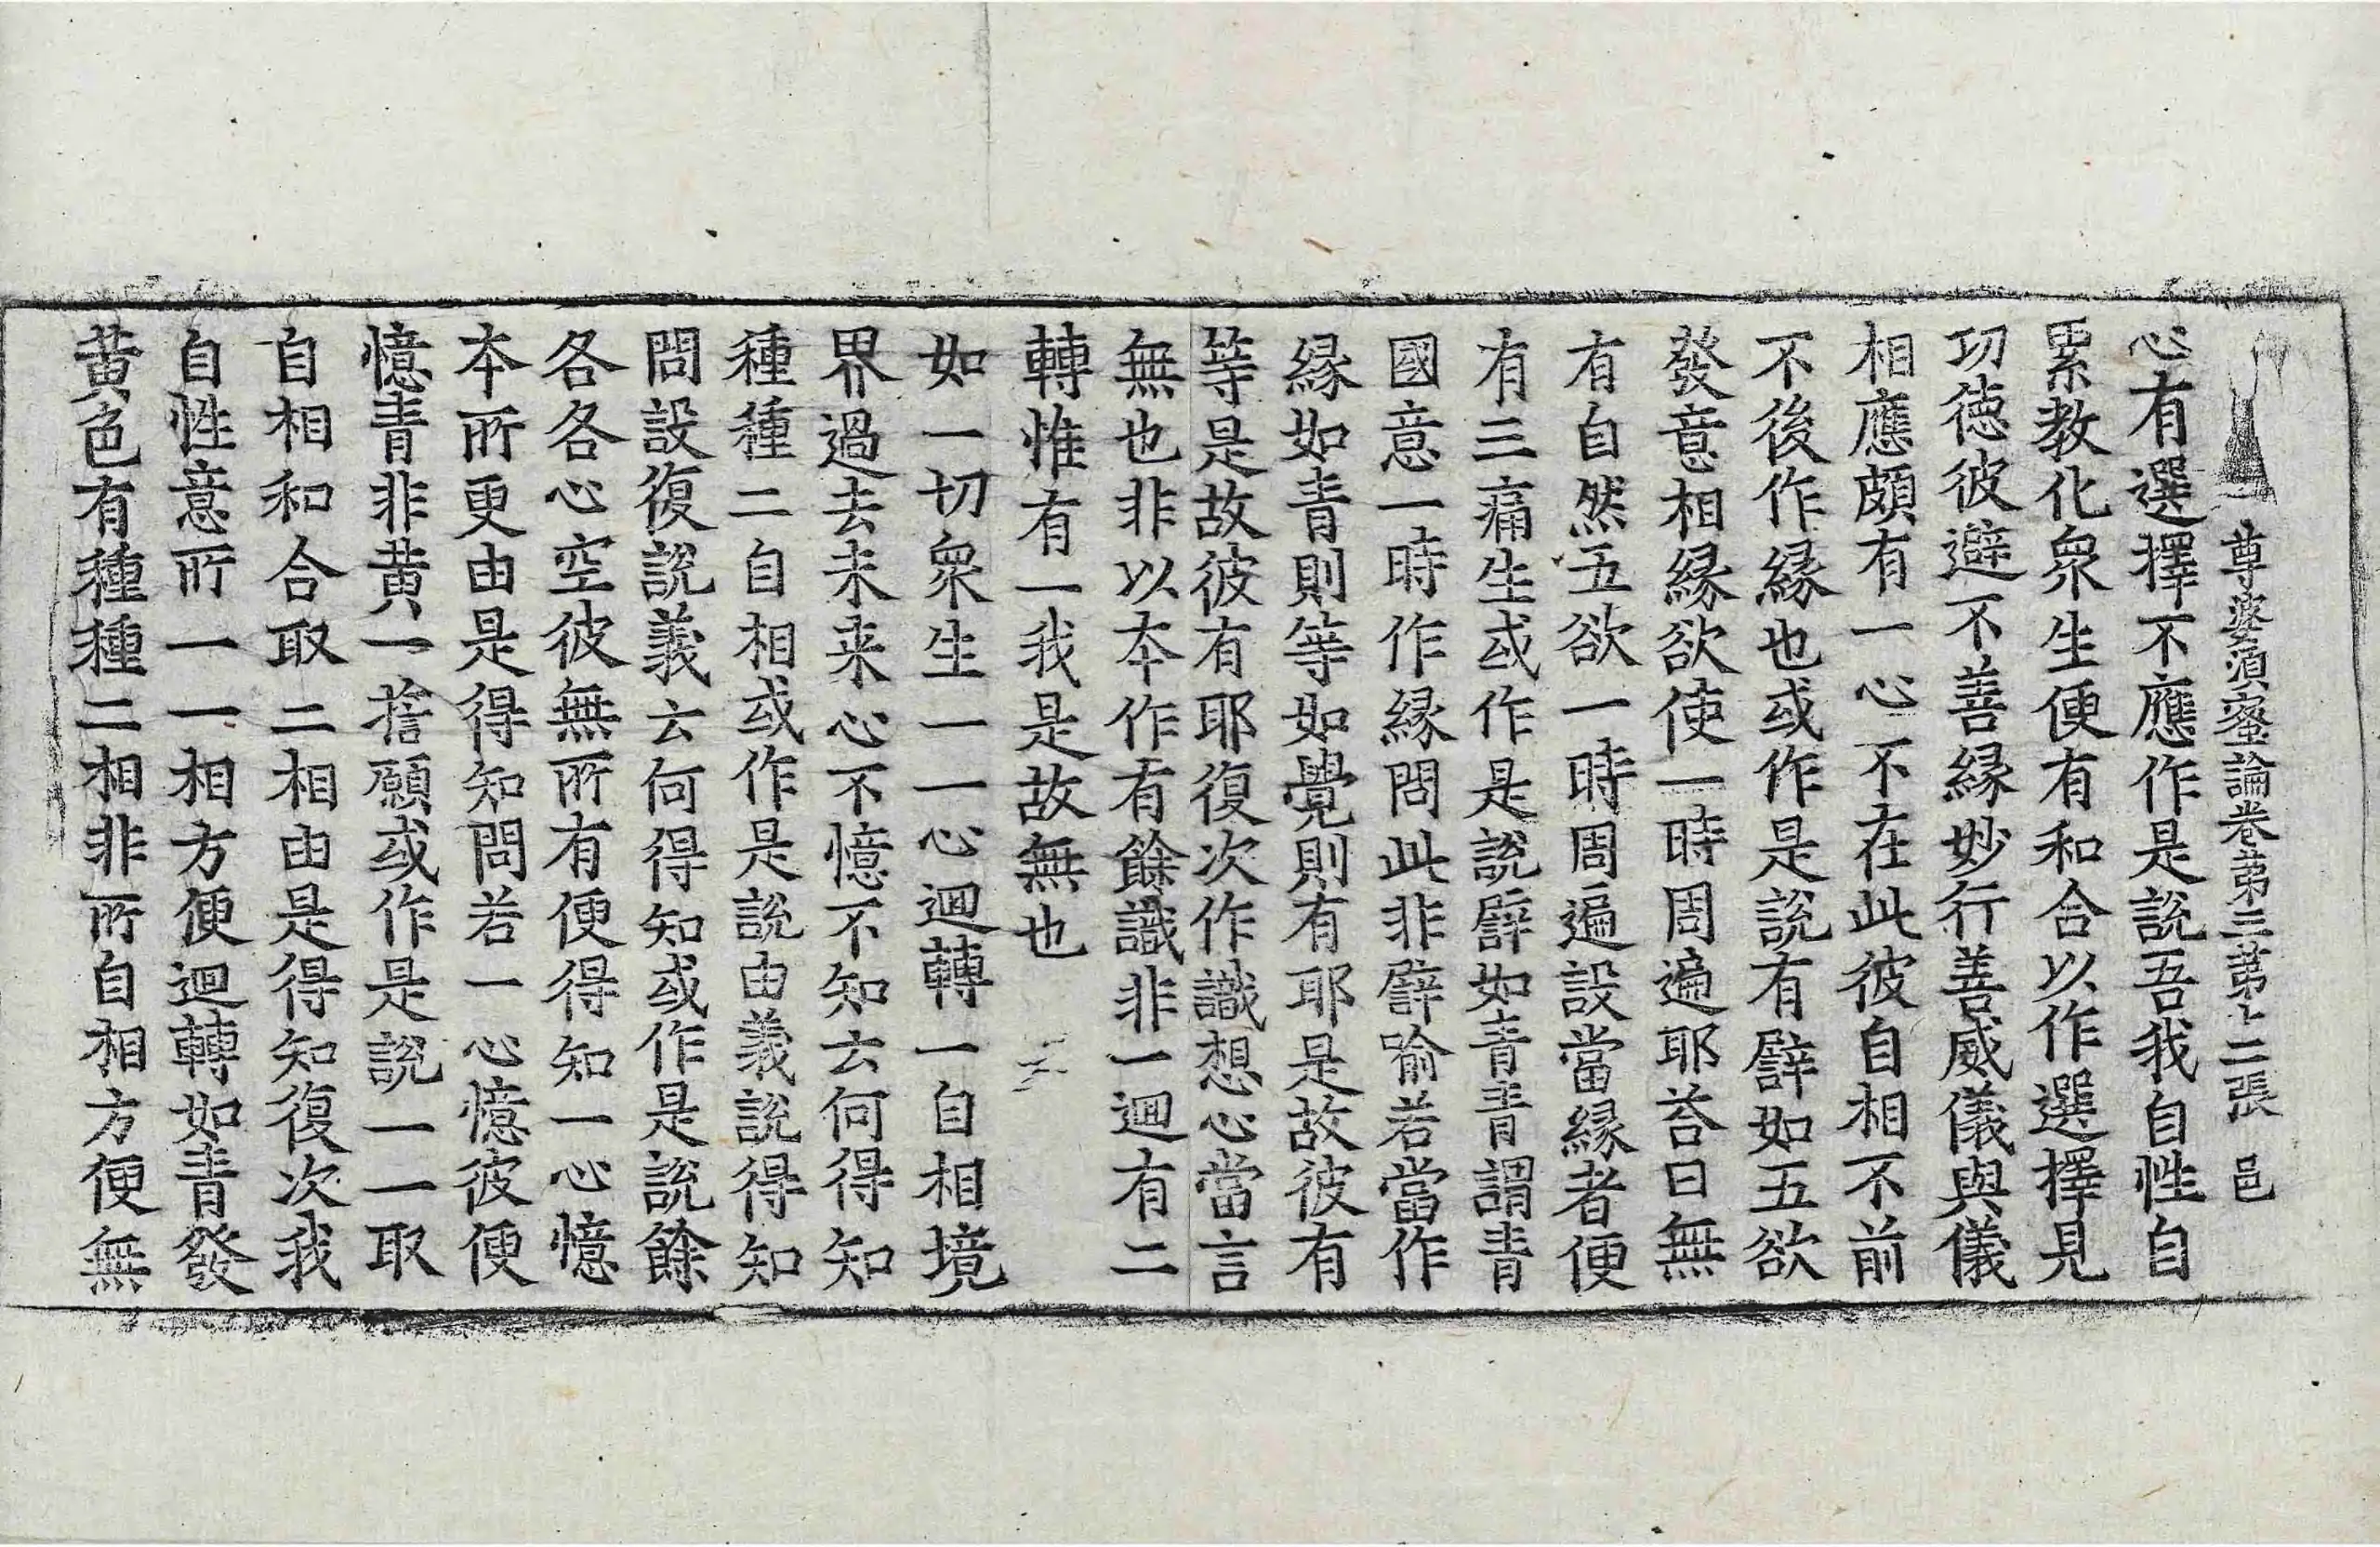 尊婆須蜜論卷第三第十二張 邑
心有選擇不應作是說吾我自性自
累教化衆生便有和合以作選擇見
功德彼避不善緣妙行善威儀與儀
相應頗有一心不在此彼自相不前
不後作緣也或作是說有譬如五欲
發意相緣欲使一時周遍耶荅曰無
有自然五欲一時周遍設當緣者便
有三痛生或作是說譬如青青謂青
國意一時作緣問此非譬喻若當作
緣如青則等如覺則有耶是故彼有
等是故彼有耶復次作識想心當言
無也非以本作有餘識非一迴有二
轉惟有一我是故無也
如一切衆生一一心迴轉一自相境
界過去未来心不憶不知云何得知
種種二自相或作是說由義說得知
問設復說義云何得知或作是說餘
各各心空彼無所有便得知一心憶
本所更由是得知問若一心憶彼便
憶青非黃一捨願或作是說一一取
自相和合取二相由是得知復次我
自性意所一一相方便迴轉如青發
黃色有種種二相非所自相方便無